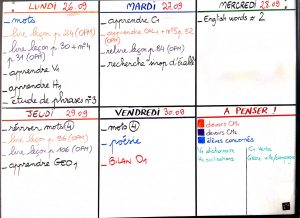 LUNDI 26.09
- mots
- lire leçon p 24 (OPM)
- lire leçon p 30 + n°4
p 31 (OPM)
- apprendre V1
- apprendre H1
- étude de phrases n°3
MARDI 27.09
- apprendre C1
- apprendre CAL1 + n°5 p 52
(OPM)
- relire leçon p 84 (OPM)
- rechercher
MERCREDI 28.09
- English words # 2
JEUDI 29.09
- réviser mots 4
- lire leçon p 96 (OPM)
- lire leçon p 106 (OPM)
- apprendre GEO1
VENDREDI 30.09
- mots 4
- poésie
- BILAN O1
A PENSER !
devoirs CM1
devoirs CM2
élèves concernés
V1 dictionnaire
C1 Verbe